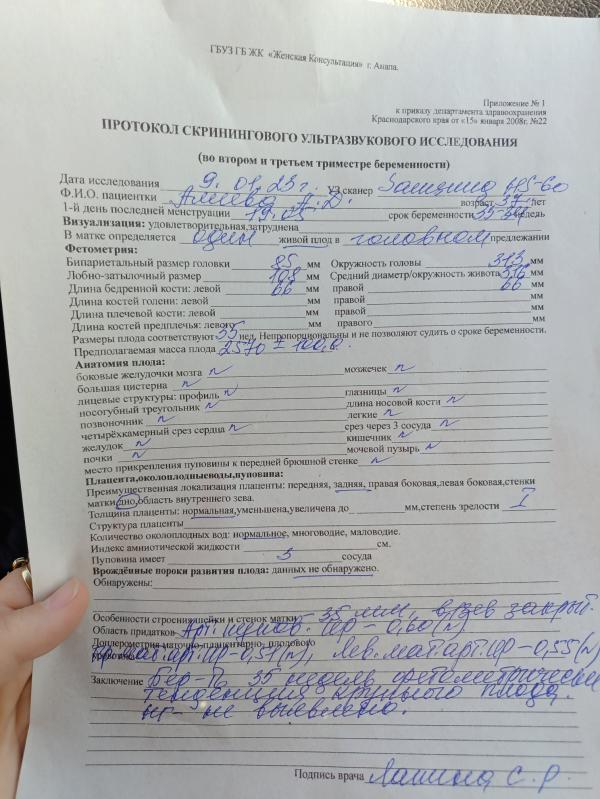 ГБУЗ ГБ ЖК «Женская Консультация» г. Анапа.
Приложение № 1
к приказу департамента здравоохранения
Краснодарского края от «15» января 2008г. №22
ПРОТОКОЛ СКРИНИНГОВОГО УЛЬТРАЗВУКОВОГО ИССЛЕДОВАНИЯ
(во втором и третьем триместре беременности)
Дата исследования 9.01.23г. УЗ сканер HS-60
Ф.И.О. пациентки А.Д. возраст 37 лет
1-й день последней менструации 19.05 срок беременности недель
Визуализация: удовлетворительная,затруднена
В матке определяется один живой плод в головном предлежании
Фетометрия:
Бипариетальный размер головки 85 мм Окружность головы 313 мм
Лобно-затылочный размер 108 мм Средний диаметр/окружность живота 316 мм
Длина бедренной кости: левой 66 мм правой 66 мм
Длина костей голени: левой мм правой мм
Длина плечевой кости: левой мм правой мм
Длина костей предплечья: левого мм правого мм
Размеры плода соответствуют 35 нед. Непропорциональны и не позволяют судить о сроке беременности.
Предполагаемая масса плода 2570 ±
Анатомия плода:
боковые желудочки мозга n мозжечек n
большая цистерна n
лицевые структуры: профиль n глазницы n
носогубный треугольник n длина носовой кости n
позвоночник n легкие n
четырёхкамерный срез сердца n срез через 3 сосуда n
желудок n кишечник n
почки n мочевой пузырь n
место прикрепления пуповины к передней брюшной стенке n
Плацента,околоплодныеводы,пуповина:
Преимущественная локализация плаценты: передняя, задняя, правая боковая,левая боковая,стенки
матки,дно,область внутреннего зева.
Толщина плаценты: нормальная,уменьшена,увеличена до мм,степень зрелости I
Структура плаценты
Количество околоплодных вод: нормальное, многоводие, маловодие.
Индекс амниотической жидкости см.
Пуповина имеет 3 сосуда
Врождённые пороки развития плода: данных не обнаружено.
Обнаружены:
Особенности строенияшейки и стенок матки - 35 мм, вн.зев закрыт.
Область придатков Арт. пупов. ИР - 0,60(n)
Доплерометрия маточно-плацентарно- плодового
кровотока Прав.мат.арт.ИР-0,51(n), Лев.мат.арт.ИР-0,55(n)
Заключение Бер-ть 35 недель фетометрически
тенденция крупного плода.
не выявлено.
Подпись врача С.Р.